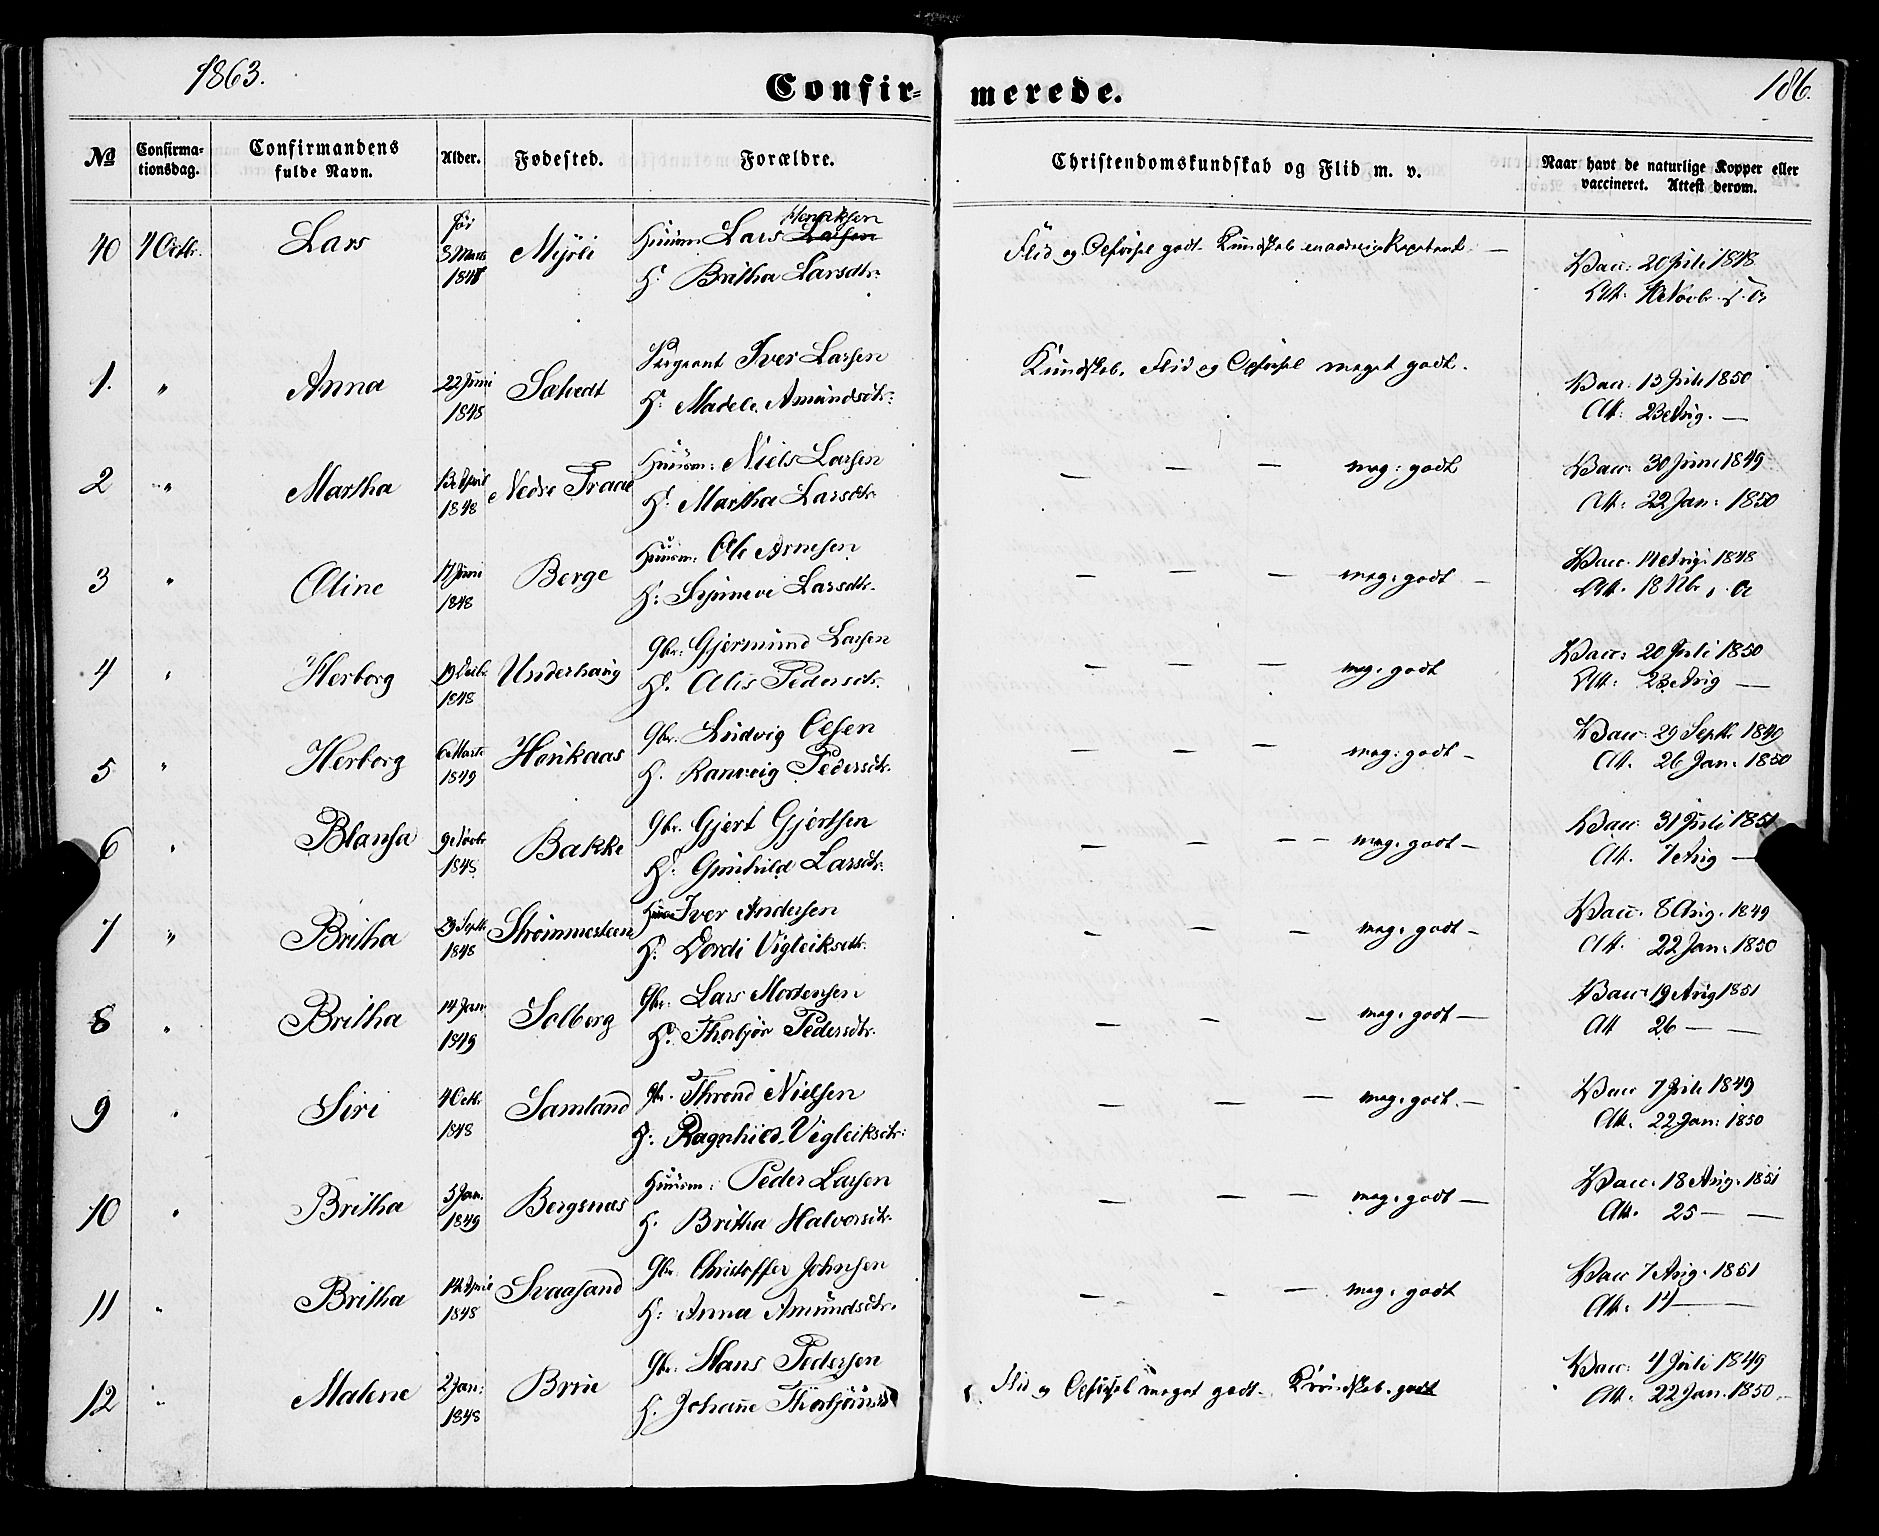 1863.
Confir-merede.
186.
No
Confirmationsdag.
Confirmandens fulde Navn.
Alder.
Fødested.
Forældre.
Christendomskundskab og Flid m. v.
Naar havt de naturlige Kopper eller vaccineret. Attest derom.
40 4 Octbr. Lars 3 Marts 184 Mijøli Huusm: Lars Larsen Henriksen
H: Britha Larsdtr.
Flid og Opførsel godt. Kundskab
Vacc: 20 Juli 1848
Att:
1. " Anna 22 Juni 1848 Sælvedt Sergeant Iver Larsen
H: Madele Amundsdtr:
Kundskab, Flid og Opførsel meget godt.
Vacc: 13 Juli 1850
Att: 23 Aug. —
2 " Martha 13 April 1848 Nedre Traae Huusm: Niels Larsen
H: Martha Larsdtr.
— — — meg: godt
Vacc: 30 Juni 1849
Att: 22 Jan: 1850
3 " Oline 17 Juni 1848 Berge Huusm: Ole Arnesen
H: Synneve Larsdtr.
— — — meg: godt —
Vacc. 14 Aug: 1848
Att. 18 Nbr. s. A
4 " Herborg 19 Decbr 1848 Underhaug Gbr: Gjermund Larsen
H: Alis Pedersdtr.
— — — meg: godt
Vacc: 20 Juli 1850
Att: 23 Aug —
5 " Herborg 6 Marts 1849 Hønkaas Gbr. Ludvig Olsen
H. Ranveig Pedersdtr.
— — — meg: godt —
Vacc: 29 Septbr. 1849
Att. 26 Jan: 1850
6 " Blansa 9 Novbr 1848 Bakke Gbr. Gjert Gjertsen
H: Gunhild Larsdtr.
— — — — meg: godt —
Vacc. 31 Juli 1851
Att. 7 Aug —
7 " Britha 29 Septbr 1848 Strømmesteen Huusm Iver Andersen
H: Dordi Vigleiksdtr.
— — — meg: godt —
Vacc. 8 Aug. 1849
Att. 22 Jan: 1850
8 " Britha 14 Jan 1849 Solberg Gbr: Lars Mortensen
H: Thorbjør Pedersdtr.
— — — meg: godt —
Vacc: 19 Aug 1851
Att 26 — —
9 " Siri 4 Octbr 1848 Samland Gbr. Thrond Nielsen
H: Ragnhild Vigleiksdtr:
— — — meg: godt. —
Vacc 7 Juli 1849
Att. 22 Jan: 1850
10 " Britha 3 Jan. 1849 Bergsnæs Huusm: Peder Larsen
H. Britha Halvorsdtr.
— — — meg: godt —
Vacc. 18 Aug. 1851
Att. 25 — —
11 " Britha 14 April 1848 Svaasand Gbr Christoffer Johnsen
H: Anna Amundsdtr.
— — — meg: godt
Vacc 7 Aug. 1851
Att. 14 — —
12 " Malene 2 Jan: 1848 Brue Gbr: Hans Pedersen
H. Johanne
Flid og Opførsel meget godt. Kundskab godt
Vacc: 4 Juli 1849
Att. 22 Jan. 1850